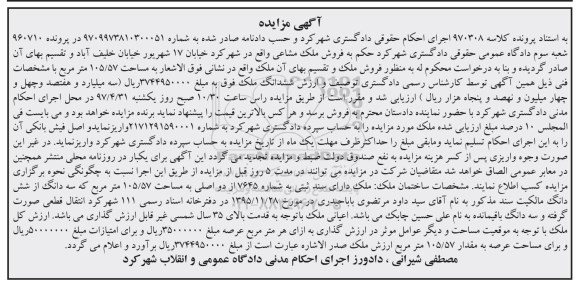 آگهی مزایده
به استناد پرونده کلاسه ۹۷۰۳۰۸ اجرای احکام حقوقی دادگستری شهرکرد و حسب دادنامه صادر شده به شماره ۹۷۰۹۹۷۳۸۱۰۳۰۰۰۵۱ در پرونده ۹۶۰۷۱۰
شعبه سوم دادگاه عمومی حقوقی دادگستری شهرکرد حکم به فروش ملک مشاعی واقع در شهرکرد خیابان ۱۷ شهریور خیابان خلیف آباد و تقسیم بهای آن
صادر گردیده و بنا به درخواست محکوم له به منظور فروش ملک و تقسیم بهای آن ملک واقع در نشانی فوق الاشعار به مساحت ۱۰۵/۵۷ متر مربع با مشخصات
فنی ذیل همین آگهی توسط کارشناس رسمی دادگستری ارزیابی و ارزش ششدانگ ملک فوق به مبلغ ۳۷۴۴۹۵۰۰۰۰ریال (سه میلیارد و هفتصد وچهل و
چهار میلیون و نهصد و پنجاه هزار ریال ) ارزیابی شد و مقرر است از طریق مزایده راس ساعت ۱۰/۳۰ صبح روز یکشنبه ۹۷/۴/۳۱ در محل اجرای احکام
مدنی دادگستری شهرکرد با حضور نماینده دادستان محترم به فروش برسد و هر کس بالاترین قیمت را پیشنهاد نماید برنده مزایده خواهد بود و می بایست فی
المجلس ۱۰ درصد مبلغ ارزیابی شده ملک مورد مزایده را به حساب سپرده دادگستری شهرکرد به شماره ۲۱۷۱۲۹۱۵۹۰۰۰۱واریزنمایدو اصل فیش بانکی آن
را به این اجرای احکام تسلیم نماید ومابقی مبلغ را حداکثرظرف مهلت یک ماه از تاریخ مزایده به حساب سپرده دادگستری شهرکرد واریزنماید. در غیر این
صورت وجوه واریزی پس از کسر هزینه مزایده به نفع صندوق دولت ضبط و مزایده تجدید می گردد این آگهی برای یکبار در روزنامه محلی منتشر همچنین
در معابر عمومی الصاق خواهد شد متقاضیان شرکت در مزایده می توانند در مدت ۵ روز قبل از مزایده از طریق این اجرا نسبت به چگونگی نحوه برگزاری
مزایده کسب اطلاع نمایند. مشخصات ساختمان ملک: ملک دارای سند ثبتی به شماره ۱۷۶۴۵ر دو اصلی به مساحت ۱۰۵/۵۷ متر مربع که سه دانگ از شش
دانگ مالکیت سند مذکور به نام آقای سید داود مرتضوی باباحیدری درمورخ ۱۳۹۵/۰۱/۲۸ در دفترخانه اسناد رسمی ۱۱۱ شهرکرد انتقال قطعی صورت
گرفته و سه دانگ باقیمانده به نام علی حسین چابک می باشد. اعیانی ملک باتوجه به قدمت بالای ۳۵ سال شمسی غیر قابل ارزش گذاری می باشد. ارزش کل
ملک با توجه به موقعیت مساحت و دیگر عوامل موثر در ارزش گذاری به ازای هر متر مربع عرصه مبلغ ۳۵۰۰۰۰۰۰ریال و برای امتیازات مبلغ ۵۰۰۰۰۰۰۰ریال
و برای مساحت عرصه به مقدار ۱۰۵/۵۷ متر مربع ارزش ملک صدر الاشاره عبارت است از مبلغ ۳۷۴۴۹۵۰۰۰۰ریال برآورد و اعلام می گردد.
مصطفی شیرانی ، دادورز اجرای احکام مدنی دادگاه عمومی و انقلاب شهرکرد